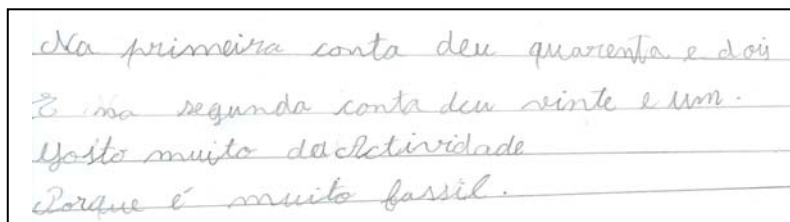 Na primeira conta deu quarenta e dois
E na segunda conta deu vinte e um.
Gosto muito da Actividade
Porque é muito fassil.